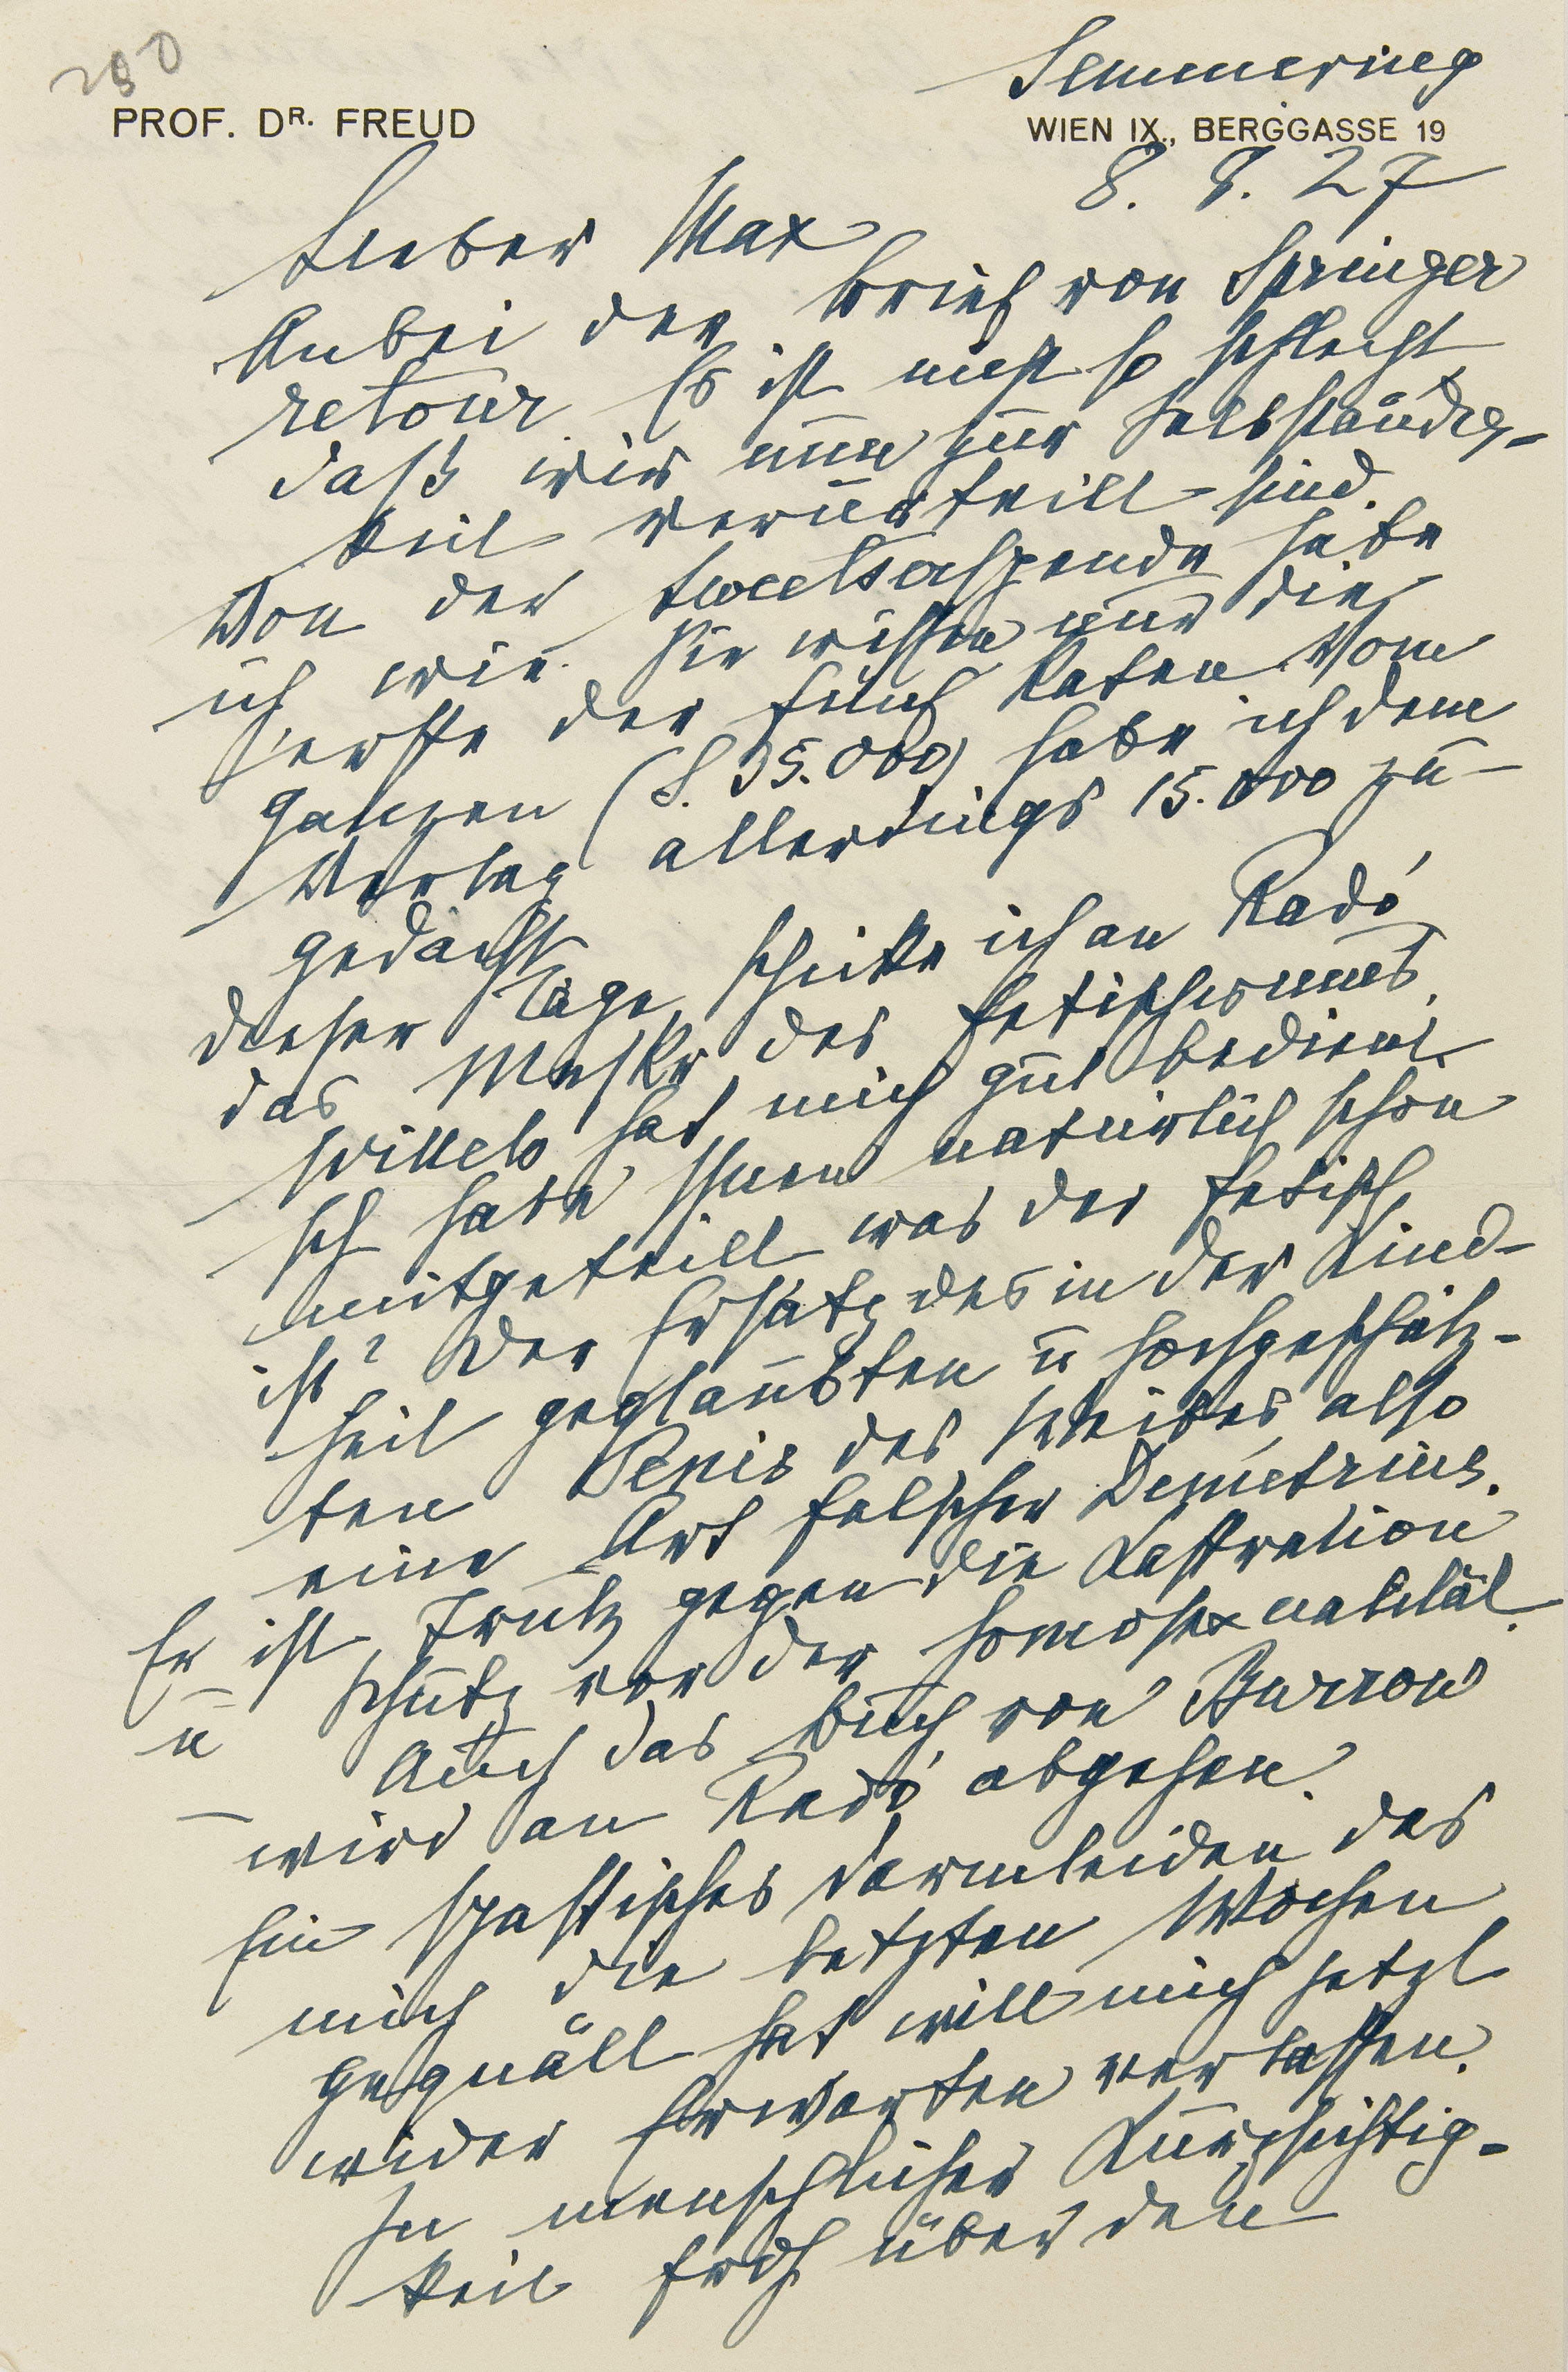 290
Semmering
PROF. DR. FREUD
WIEN IX., BERGGASSE 19
8. 8. 27
Lieber Max
Anbei der Brief von Springer
retour. Es ist nicht so schlecht
daß wir nun zur Selbständig-
keit verurteilt sind.
Von der Sweetserspende habe
ich wie Sie wissen nur die
erste der fünf Raten. Vom
Ganzen (S. 35.000) habe ich dem
Verlag allerdings 15.000 zu-
gedacht
Dieser Tage schicke ich an Radó
das Mskr des Fetischismus.
Wittels hat mich gut bedient.
Ich habe Ihnen natürlich schon
mitgeteilt was der Fetisch
ist? Der Ersatz des in der Kind-
heit geglaubten u hochgeschätz-
ten Penis des Weibes, also
eine Art falscher Demetrius.
Er ist Trutz gegen die Kastration
u Schutz vor der Homosexualität.
Auch das Buch von Burrow
wird an Radó abgehen.
Ein spastisches Darmleiden das
mich die letzten Wochen
gequält hat will mich jetzt
wider Erwarten verlassen.
In menschlicher Kurzsichtig-
keit froh über den